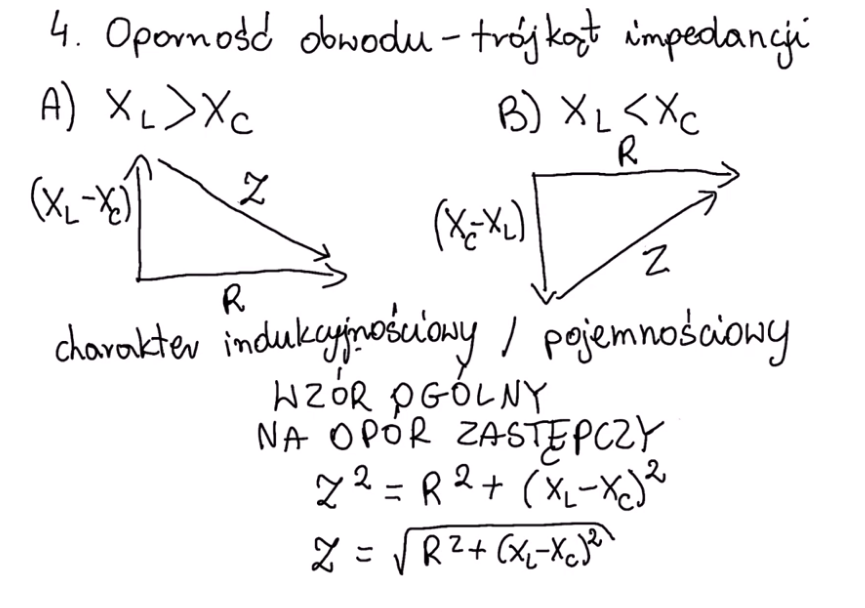 4. Oporność obwodu - trójkąt impedancji
A) X_L > X_C
B) X_L < X_C
(X_L - X_C)
Z
R
R
(X_C - X_L)
Z
charakter indukcyjnościowy / pojemnościowy
WZÓR OGÓLNY
NA OPÓR ZASTĘPCZY
Z² = R² + (X_L - X_C)²
Z = √(R² + (X_L - X_C)²)